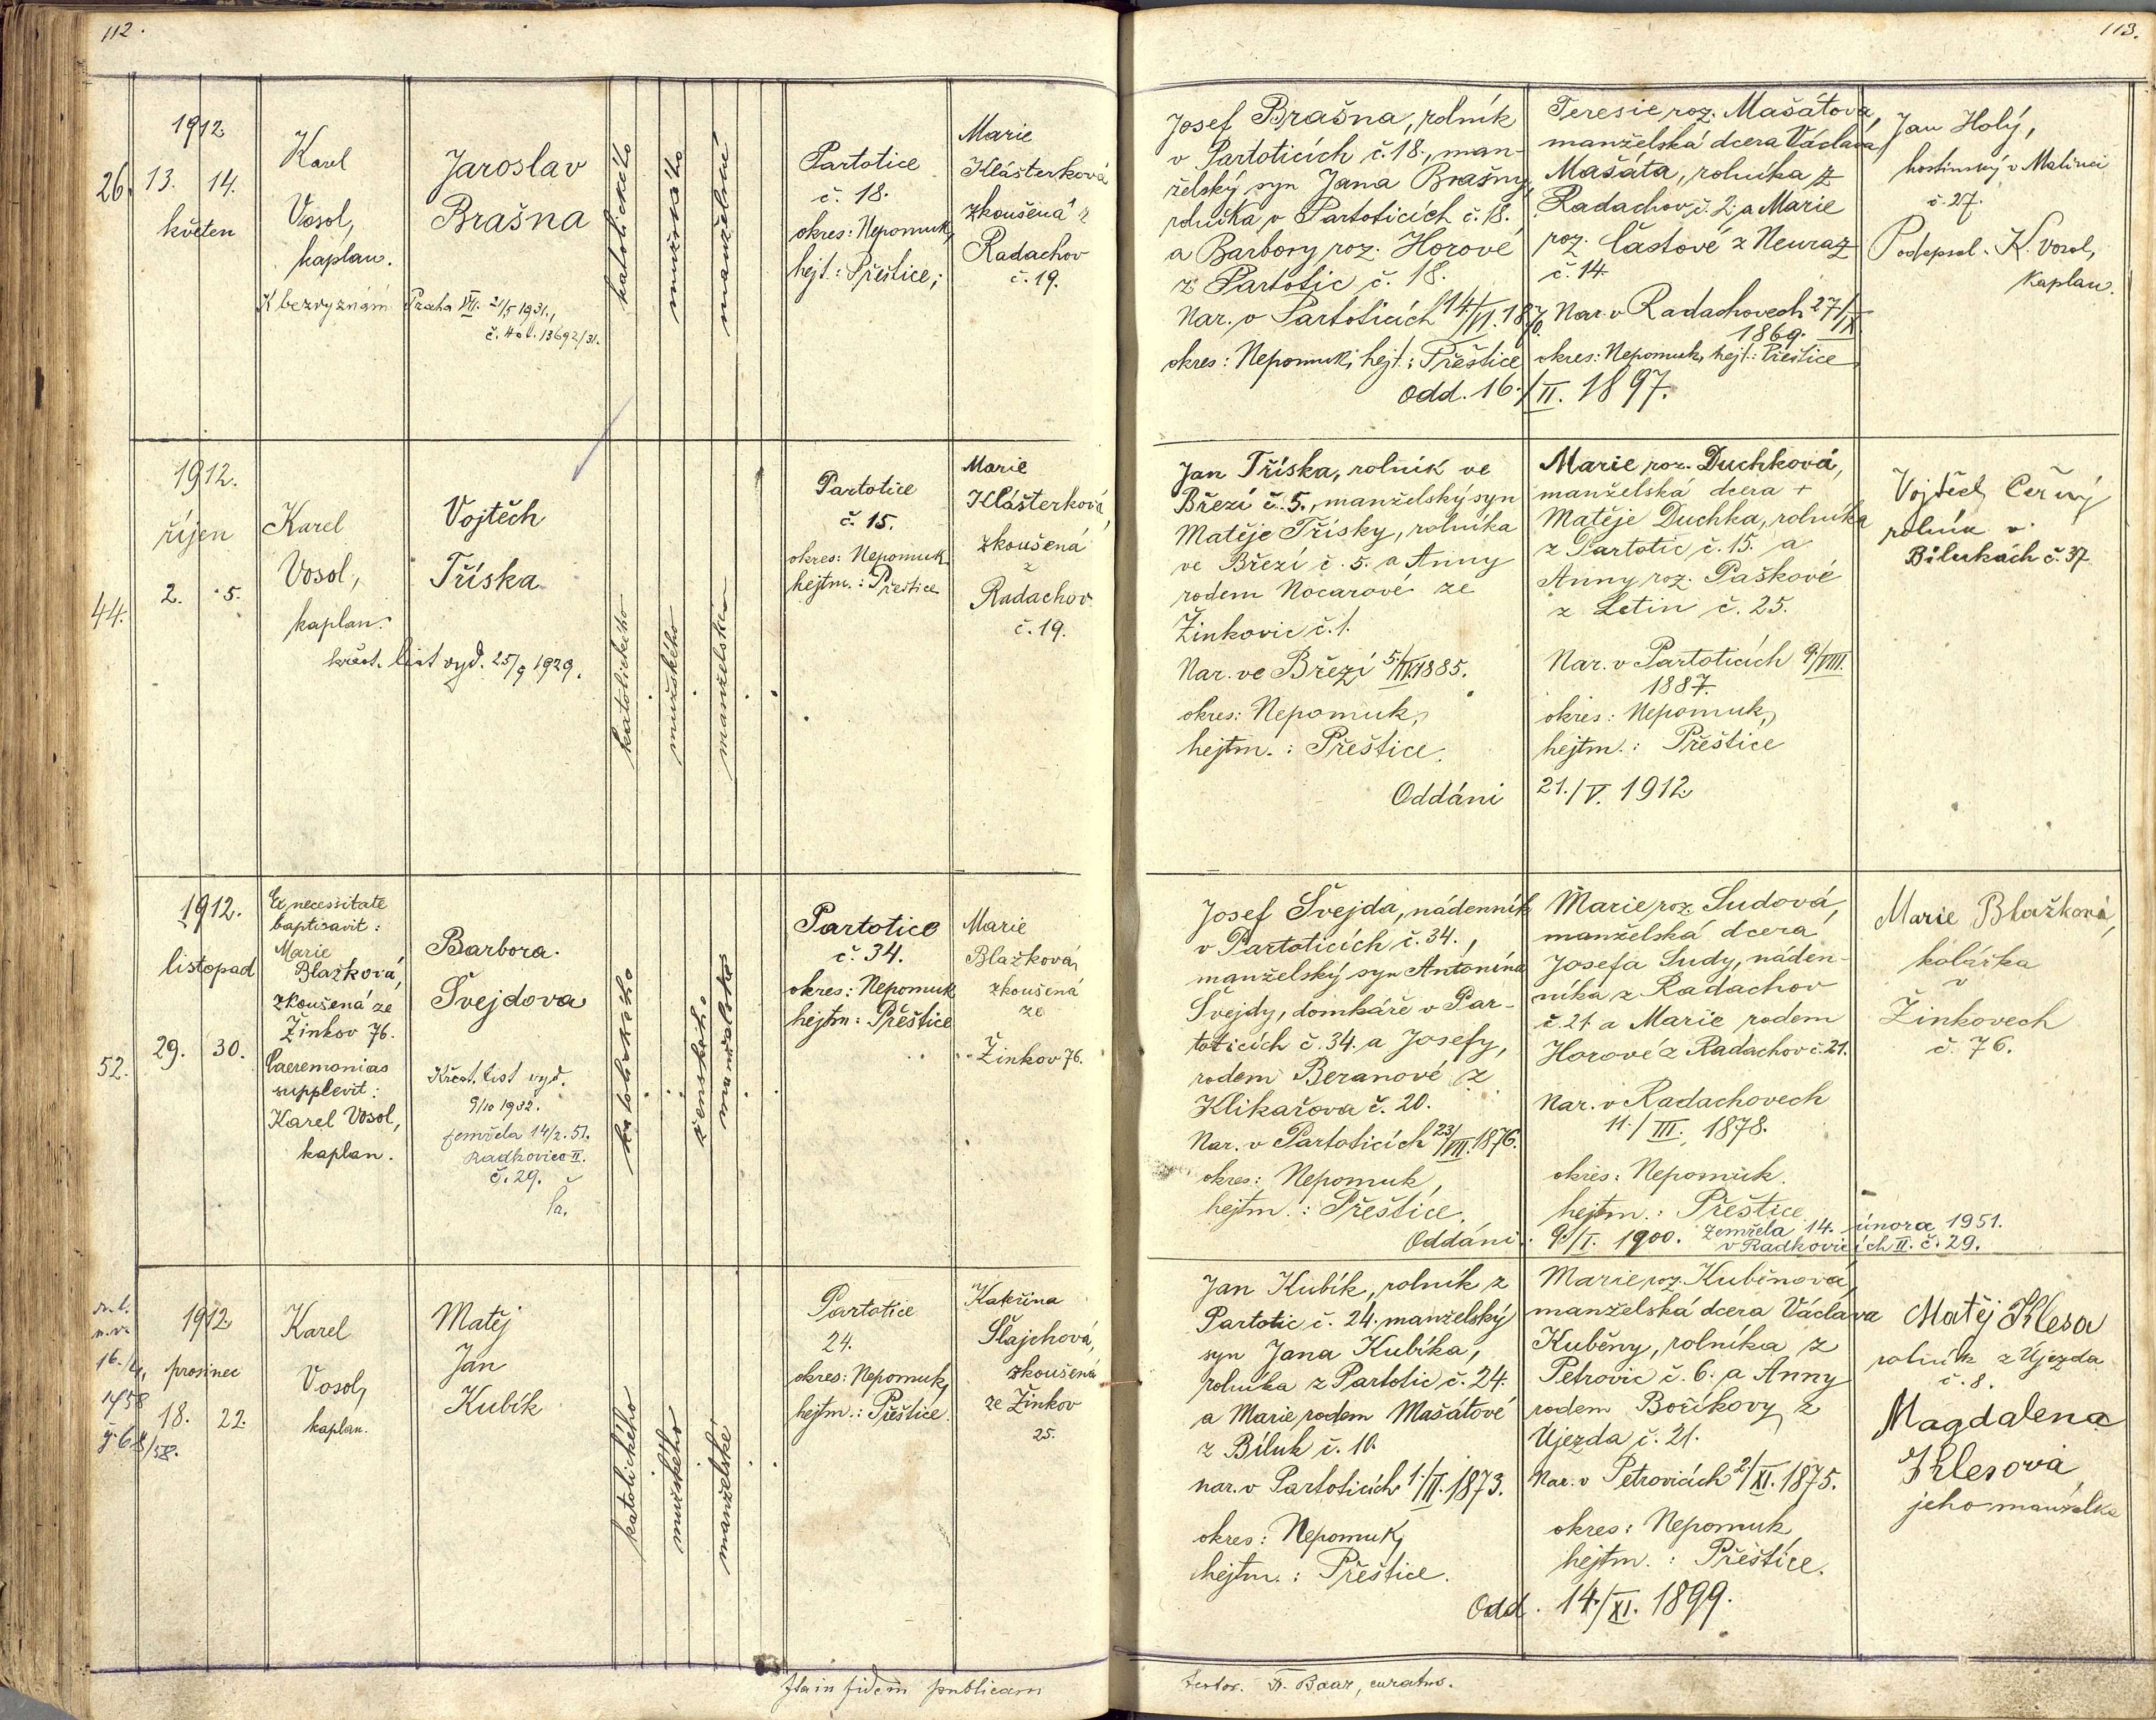 112.
1912
26.
13. 14.
květen
Karel
Vosol,
kaplan.
K bezvyznám. Praha VII. 21/5 1931.,
č. 13692/31.
Jaroslav
Brašna
katolického
mužského
manželské
Partotice
č. 18.
okres: Nepomuk,
hejt.: Přeštice;
Marie
Klášterková
zkoušená z
Radachov
č. 19.
1912.
říjen
44.
2. 5.
Karel
Vosol,
kaplan.
křest. list vyd. 25/9 1929.
Vojtěch
Tříska
katolického
mužského
manželské
Partotice
č. 15.
okres: Nepomuk
hejtm.: Přeštice
Marie
Klášterková,
zkoušená
z
Radachov
č. 19.
1912.
listopad
52.
29. 30.
Ex necessitate
baptisavit:
Marie
Blažková,
zkoušená ze
Žinkov 76.
Caeremonias
supplevit:
Karel Vosol,
kaplan.
Barbora
Švejdova
Křest. list vyd.
9/10 1932.
zemřela 14/2. 51.
Radkovice II.
č. 29.
katolického
ženského
manželské
Partotice
č. 34.
okres: Nepomuk
hejtm: Přeštice
Marie
Blažková,
zkoušená
ze
Žinkov 76.
16./4.
1958
1912
prosinec
18. 22.
Karel
Vosol,
kaplan.
Matěj
Jan
Kubík
katolického
mužského
manželské
Partotice
24.
okres: Nepomuk,
hejtm.: Přeštice.
Kateřina
Šlajchová,
zkoušená
ze Žinkov
25.
Ita in fidem publicam
113.
Josef Brašna, rolník
v Partoticích č. 18., man-
želský syn Jana Brašny,
rolníka v Partoticích č. 18.
a Barbory roz. Horové
z Partotic č. 18.
Nar. v Partoticích 14./VI. 1870.
okres: Nepomuk, hejt.: Přeštice
Teresie roz. Mašátova,
manželská dcera Václava
Mašáta, rolníka z
Radachov č. 2 a Marie
roz. Částové z Neuraz
č. 14
Nar. v Radachovech 27/IX.
1869.
okres: Nepomuk, hejt.: Přeštice
Odd. 16./II. 1897.
Jan Holý,
hostinský v Malinci
č. 27.
Podepsal K. Vosol,
kaplan.
Jan Tříska, rolník ve
Březí č. 5., manželský syn
Matěje Třísky, rolníka
ve Březí č. 5. a Anny
rodem Nocarové ze
Žinkovic č. 1.
Nar. ve Březí 5./III. 1885.
okres: Nepomuk,
hejtm.: Přeštice.
Marie roz. Duchková,
manželská dcera +
Matěje Duchka, rolníka
z Partotic č. 15. a
Anny roz. Paškové
z Letin č. 25.
Nar. v Partoticích 9./VIII.
1887.
okres: Nepomuk,
hejtm.: Přeštice
Oddáni 21./V. 1912
Vojtěch Černý
rolník v
Bílukách č. 37
Josef Švejda, nádenník
v Partoticích č. 34.,
manželský syn Antonína
Švejdy, domkáře v Par-
toticích č. 34. a Josefy,
rodem Beranové z
Klikařova č. 20.
Nar. v Partoticích 23/VII. 1876.
okres: Nepomuk,
hejtm.: Přeštice.
Marie roz. Sudová,
manželská dcera
Josefa Sudy, náden-
níka z Radachov
č. 21 a Marie rodem
Horové z Radachov č. 21.
Nar. v Radachovech
11./III. 1878.
okres: Nepomuk.
hejtm.: Přeštice
Oddáni: 9./I. 1900. Zemřela 14. února 1951.
v Radkovicích II. č. 29.
Marie Blažková,
kolářka
v
Žinkovech
č. 76.
Jan Kubík, rolník z
Partotic č. 24. manželský
syn Jana Kubíka,
rolníka z Partotic č. 24.
a Marie rodem Mašátové
z Bíluk č. 10.
nar. v Partoticích 1./II. 1873.
okres: Nepomuk,
hejtm.: Přeštice.
Marie roz. Kuběnová,
manželská dcera Václava
Kuběny, rolníka z
Petrovic č. 6. a Anny
rodem Boříkovy z
Újezda č. 21.
Nar. v Petrovicích 2/XI. 1875.
okres: Nepomuk
hejtm.: Přeštice.
Odd. 14./XI. 1899.
Matěj Klesa
rolník z Újezda
č. 8.
Magdalena
Klesová
jeho manželka
testor. Fr. Baar, curatus.